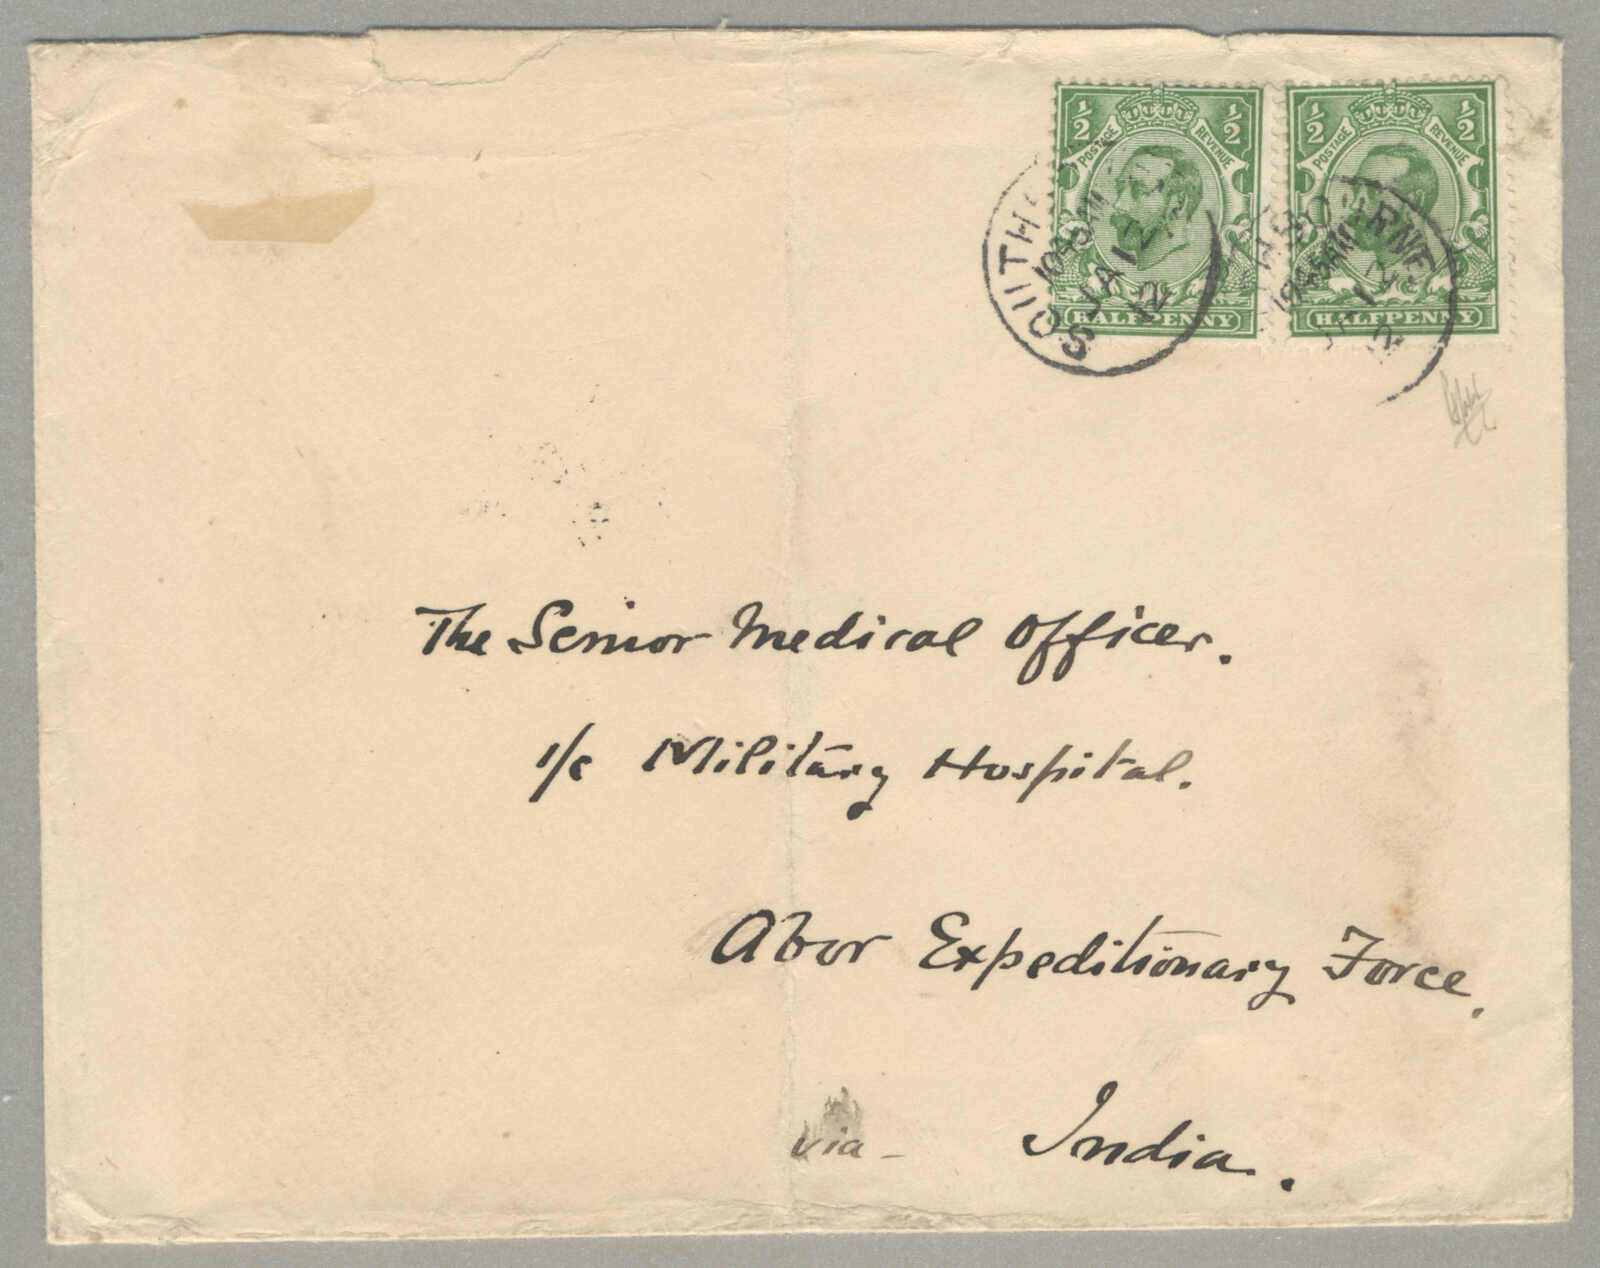 ½ ½
POSTAGE REVENUE
HALFPENNY
½ ½
POSTAGE REVENUE
HALFPENNY
SOUTH
1045AM
JA 12
12
BOURNE
1045AM
JA 12
12
The Senior Medical Officer.
1/c Military Hospital.
Abor Expeditionary Force.
via – India.